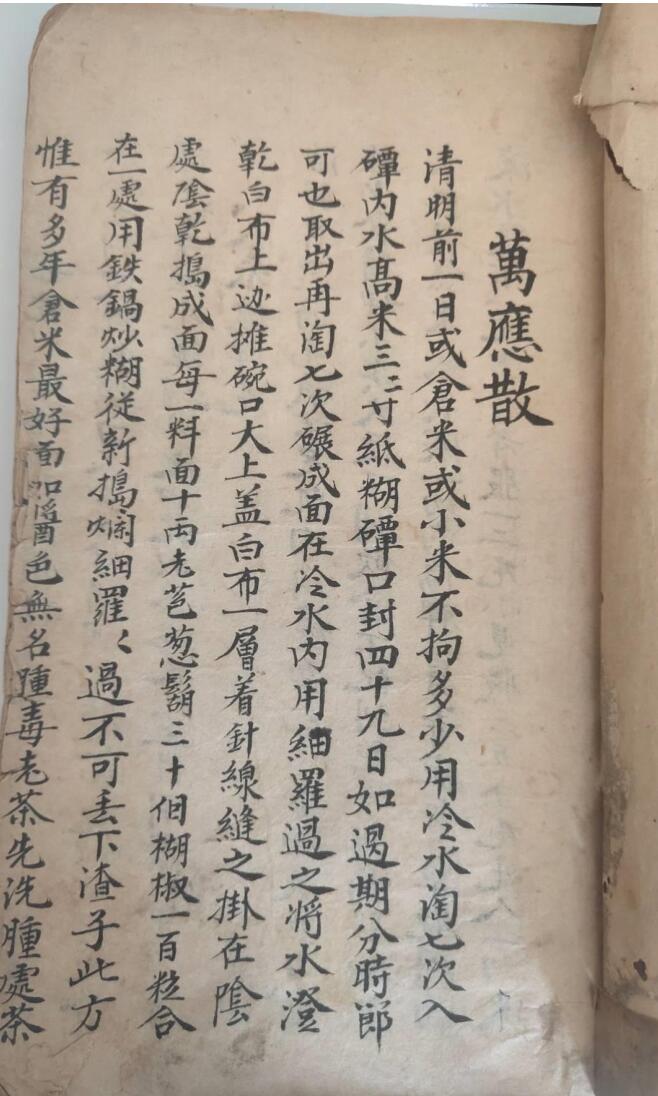 萬應散
清明前一日或倉米或小米不拘多少用冷水淘七次入
磹内水髙米三二寸紙糊磹口封四十九日如過期分時節
可也取出再淘七次碾成面在冷水内用細羅過之将水澄
乾白布上边摊碗口大上盖白布一層着針線縫之掛在陰
處陰乾搗成面每一料面十両老芭葱鬍三十個糊椒一百粒合
在一處用鉄鍋炒糊從新搗爛細羅〻過不可丢下渣子此方
惟有多年倉米最好面如醬色無名踵毒老茶先洗腫處茶